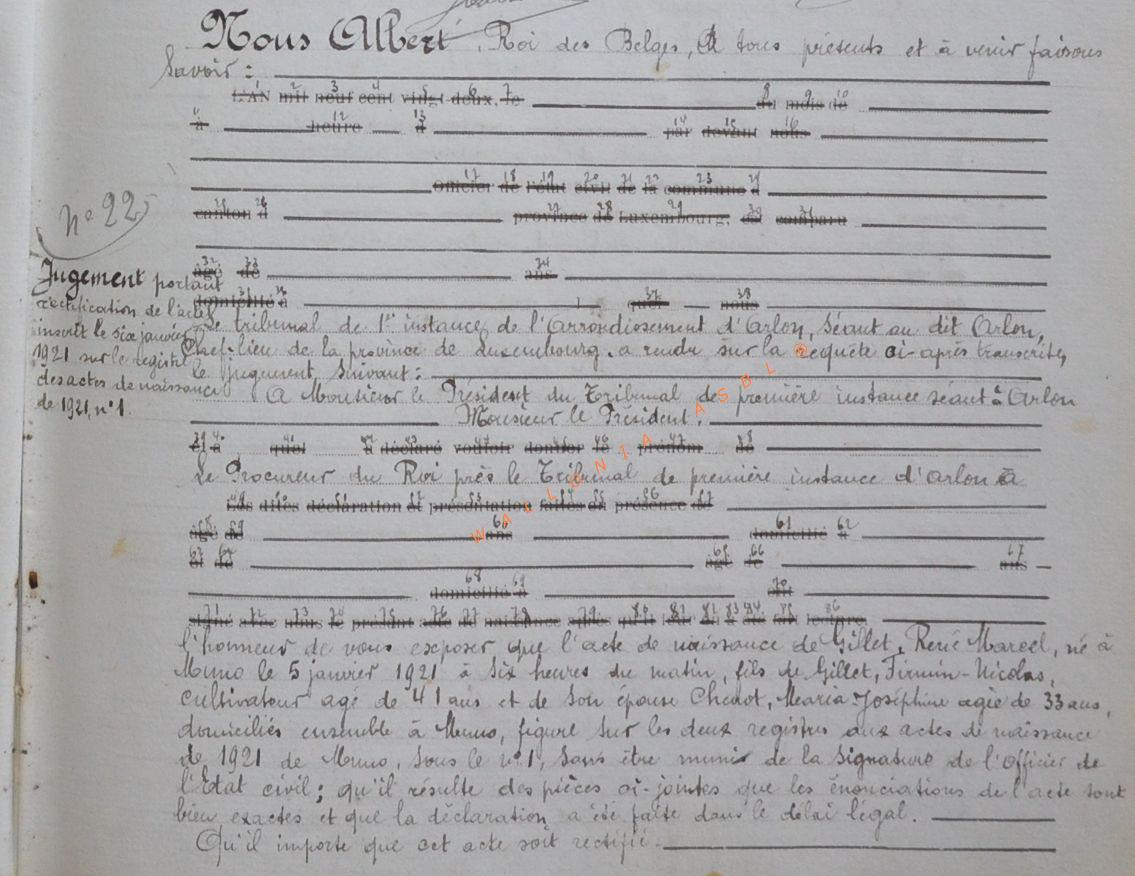 Nous Albert, Roi des Belges, A tous présents et à venir faisons
Savoir :
L'AN mil neuf cent vingt-deux, le du mois de
à heure à par devant nous
officier de l'état civil de la commune d
canton d province de Luxembourg, est comparu
N° 22
âgé de ans
domicilié à quel nous
Jugement portant
rectification de l'acte
inscrit le six janvier
1921 sur le registre
des actes de naissance
de 1921, n° 1.
Le tribunal de 1re instance de l'Arrondissement d'Arlon, Séant au dit Arlon,
Chef-lieu de la province de Luxembourg. a rendu sur la requête ci-après transcrite,
le jugement suivant :
A Monsieur le Président du Tribunal de première instance séant à Arlon
Monsieur le Président.
et a quel a déclaré vouloir donner le prénom de
Le Procureur du Roi près le Tribunal de première instance d'Arlon a
Les dites déclaration et présentation faites en présence de
âgé de ans domicilié à
et de âgé de ans
domicilié à
signé avec nous le présent acte de naissance après qu'il en a été lecture.
l'honneur de vous exposer que l'acte de naissance de Gillet, René Marcel, né à
Muno le 5 janvier 1921 à six heures du matin, fils de Gillet, Firmin-Nicolas,
cultivateur agé de 41 ans et de son épouse Chenot, Maria Joséphine agée de 33 ans,
domiciliés ensemble à Muno, figure sur les deux registres aux actes de naissance
de 1921 de Muno, sous le n° 1, sans être munis de la signature de l'Officier de
l'Etat civil; qu'il résulte des pièces ci-jointes que les énonciations de l'acte sont
bien exactes et que la déclaration a été faite dans le délai légal.
Qu'il importe que cet acte soit rectifié.
WALLONIA ASBL